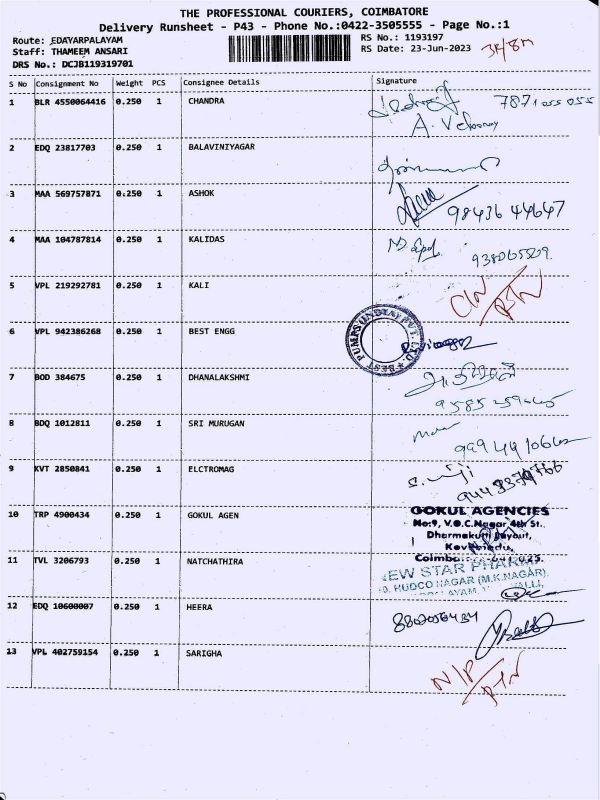 THE PROFESSIONAL COURIERS, COIMBATORE
Delivery Runsheet - P43 - Phone No.:0422-3505555 - Page No.:1
Route: EDAYARPALAYAM
RS No.: 1193197
Staff: THAMEEM ANSARI
RS Date: 23-Jun-2023
DRS No.: DCJB119319701
S No Consignment No Weight PCS Consignee Details Signature
1 BLR 4550064416 0.250 1 CHANDRA 7871055055
A.
2 EDQ 23817703 0.250 1 BALAVINIYAGAR
3 MAA 569757871 0.250 1 ASHOK 9843644647
4 MAA 104787814 0.250 1 KALIDAS
5 VPL 219292781 0.250 1 KALI
6 VPL 942386268 0.250 1 BEST ENGG
BEST PUMPS (INDIA) PVT. LTD
7 BOD 384675 0.250 1 DHANALAKSHMI
8 BDQ 1012811 0.250 1 SRI MURUGAN
9 KVT 2850841 0.250 1 ELCTROMAG
10 TRP 4900434 0.250 1 GOKUL AGEN
GOKUL AGENCIES
No:9, V.O.C.Nagar 4th St.
Dharmakutti Layout,
11 TVL 3206793 0.250 1 NATCHATHIRA
NEW STAR PHARMA
HUDCO NAGAR (M.K.NAGAR),
12 EDQ 10600007 0.250 1 HEERA
13 VPL 402759154 0.250 1 SARIGHA
N/P
RTN